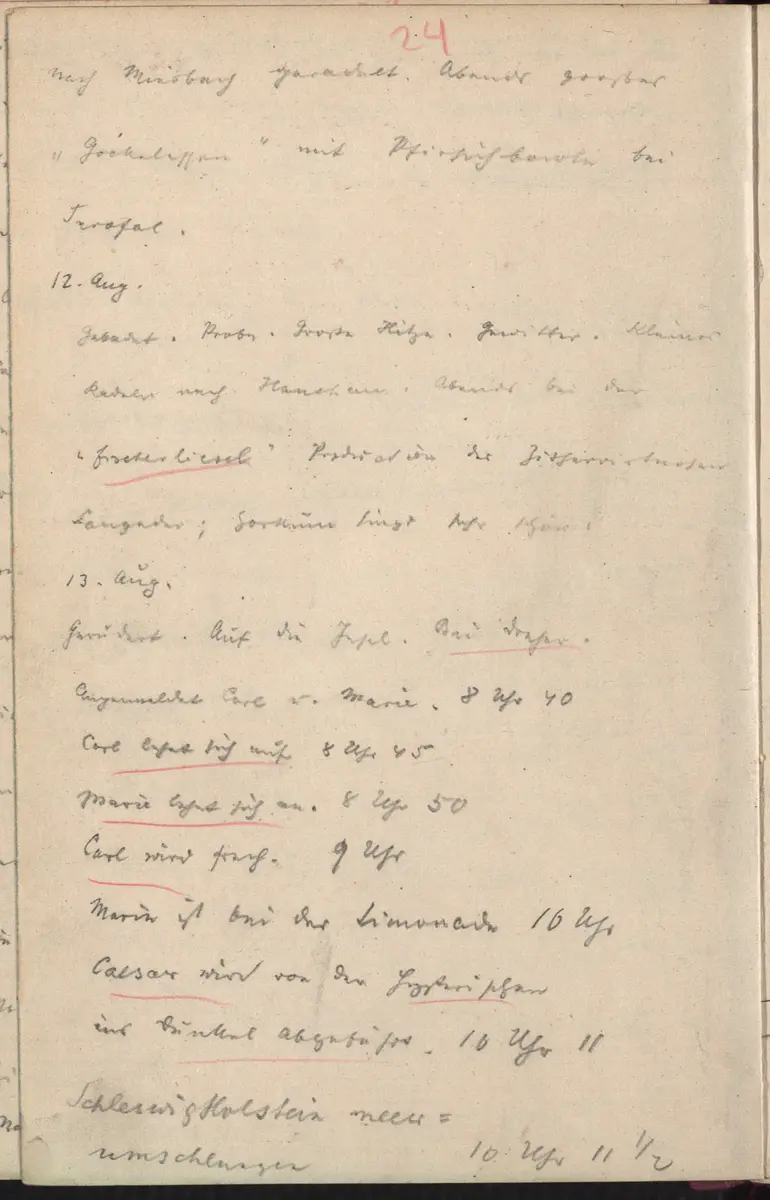 24
nach Miesbach geradelt. Abends großes
„Göckelessen" mit Pfirsichbowle bei
Terofal.
12. Aug.
Gebadet. Probe. Große Hitze. Gewitter. Kleines
Radeln nach Hausham. Abends bei der
"Fischerliesel" Production des Zithervirtuosen
singt sehr schön.
13. Aug.
Gerudert. Auf die Insel. Bei Dreher.
Angemeldet Carl u. Marie. 8 Uhr 40
Carl lehnt sich auf 8 Uhr 45
Marie lehnt sich an. 8 Uhr 50
Carl wird frech. 9 Uhr
Marie ist bei der Limonade 10 Uhr
Caesar wird von den Hysterischen
ins Dunkel abgeführt. 10 Uhr 11
Schleswig Holstein meer=
umschlungen 10 Uhr 11 1/2